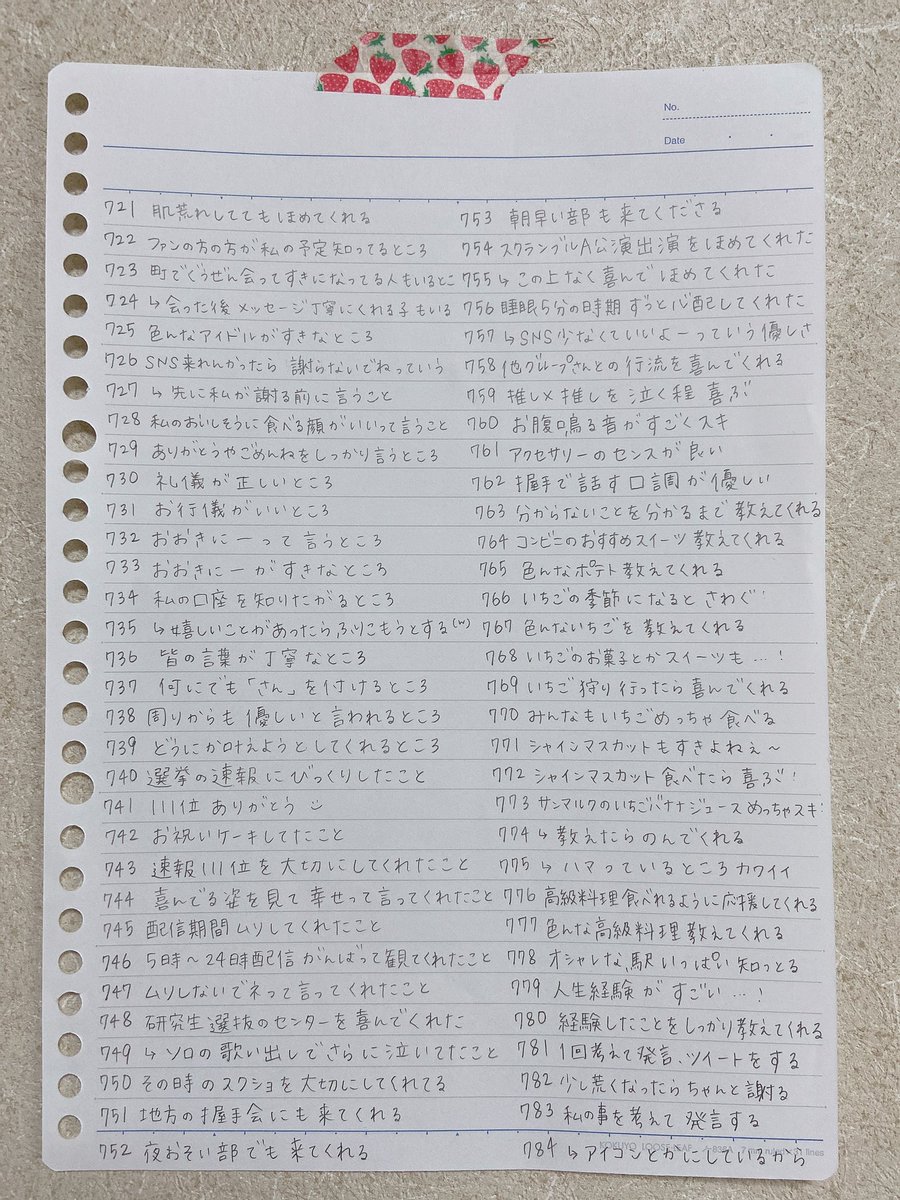 No.
Date
721 肌荒れしててもほめてくれる
722 ファンの方の方が私の予定知ってるところ
723 町でぐうぜん会ってすきになってる人もいるとこ
724 ↳会った後メッセージ丁寧にくれる子もいる
725 色んなアイドルがすきなところ
726 SNS来れんかったら謝らないでねっていう
727 ↳先に私が謝る前に言うこと
728 私のおいしそうに食べる顔がいいって言うこと
729 ありがとうやごめんねをしっかり言うところ
730 礼儀が正しいところ
731 お行儀がいいところ
732 おおきにーって言うところ
733 おおきにーがすきなところ
734 私の口座を知りたがるところ
735 ↳嬉しいことがあったらふりこもうとする(w)
736 皆の言葉が丁寧なところ
737 何にでも「さん」を付けるところ
738 周りからも優しいと言われるところ
739 どうにか叶えようとしてくれるところ
740 選挙の速報にびっくりしたこと
741 111位ありがとう
742 お祝いケーキしてたこと
743 速報111位を大切にしてくれたこと
744 喜んでる姿を見て幸せって言ってくれたこと
745 配信期間ムリしてくれたこと
746 5時〜24時配信がんばって観てくれたこと
747 ムリしないでネって言ってくれたこと
748 研究生選抜のセンターを喜んでくれた
749 ↳ソロの歌い出しでさらに泣いてたこと
750 その時のスクショを大切にしてくれてる
751 地方の握手会にも来てくれる
752 夜おそい部でも来てくれる
753 朝早い部も来てくださる
754 スクランブルA公演出演をほめてくれた
755 ↳この上なく喜んでほめてくれた
756 睡眠5分の時期ずっと心配してくれた
757 ↳SNS少なくていいよーっていう優しさ
758 他グループさんとの行流を喜んでくれる
759 推し×推しを泣く程喜ぶ
760 お腹鳴る音がすごくスキ
761 アクセサリーのセンスが良い
762 握手で話す口調が優しい
763 分からないことを分かるまで教えてくれる
764 コンビニのおすすめスイーツ教えてくれる
765 色んなポテト教えてくれる
766 いちごの季節になるとさわぐ!
767 色んないちごを教えてくれる
768 いちごのお菓子とかスイーツも…!
769 いちご狩り行ったら喜んでくれる
770 みんなもいちごめっちゃ食べる
771 シャインマスカットもすきよねぇ〜
772 シャインマスカット食べたら喜ぶ!
773 サンマルクのいちごバナナジュースめっちゃスキ!
774 ↳教えたらのんでくれる
775 ↳ハマっているところカワイイ
776 高級料理食べれるように応援してくれる
777 色んな高級料理教えてくれる
778 オシャレな駅いっぱい知っとる
779 人生経験がすごい…!
780 経験したことをしっかり教えてくれる
781 1回考えて発言、ツイートをする
782 少し荒くなったらちゃんと謝る
783 私の事を考えて発言する
784 ↳アイコンとかにしているから
KOKUYO LOOSE-LEAF